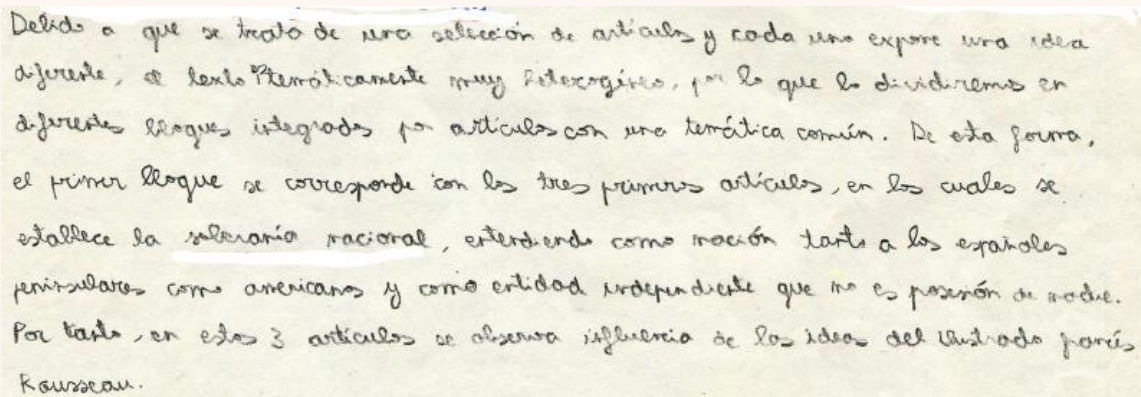 Debido a que se trata de una selección de artículos y cada uno expone una idea
diferente, el texto es temáticamente muy heterogéneo, por lo que lo dividiremos en
diferentes bloques integrados por artículos con una temática común. De esta forma,
el primer bloque se corresponde con los tres primeros artículos, en los cuales se
establece la soberanía nacional, entendiendo como nación tanto a los españoles
peninsulares como americanos y como entidad independiente que no es posesión de nadie.
Por tanto, en estos 3 artículos se observa influencia de las ideas del ilustrado francés
Rousseau.